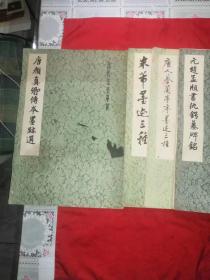 唐顔真卿傳本墨跡選
米芾墨迹三種
唐人摹蘭亭序墨迹三種
元趙孟頫書仇鍔墓碑銘